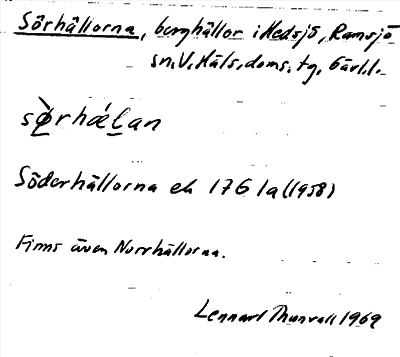 Sörhällorna, berghällor i Hedsjö, Ramsjö
sn. V. Häls. doms. tg. Gävl. l.
sø̀rhǽlan
Söderhällorna ek 17G 1a (1958)
Finns även Norrhällorna.
Lennart Thunvall 1969